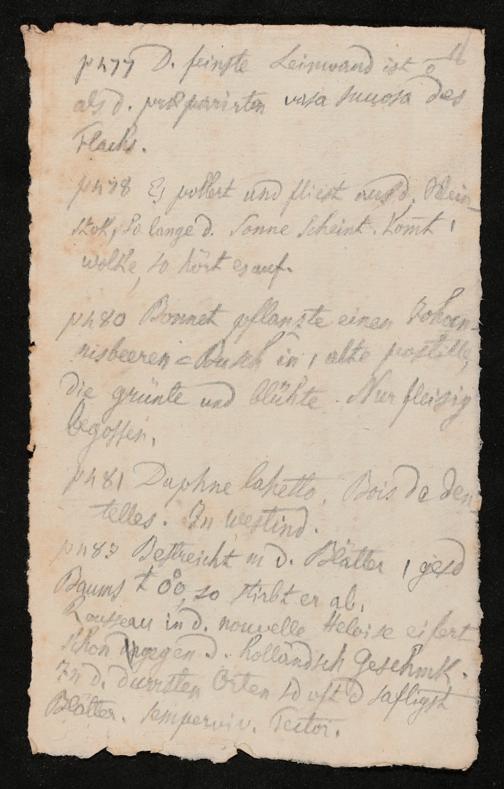 p477 D. feinste Leinwand ist
als d. præparirten vasa des
Flachs.
p478 Es und fliest aus d. Wein-
stok, so lange d. Sonne scheint. Komt 1
wolke, so hört es auf.
p480 Bonnet pflanzte einen Johan-
nisbeeren = Busch in 1 alte postille,
die grünte und blühte. Nur fleisig
begossen.
p481 Daphne lahetto. Bois de den-
telles. In westind.
p483 Bestreicht m d. Blätter 1
Baums so stirbt er ab.
Rousseau in d. nouvelle Heloise eifert
schon wegen d. holländsch Geschmk.
In d. durrsten Orten so oft d saftigst
Blätter. semperviv. Tector.